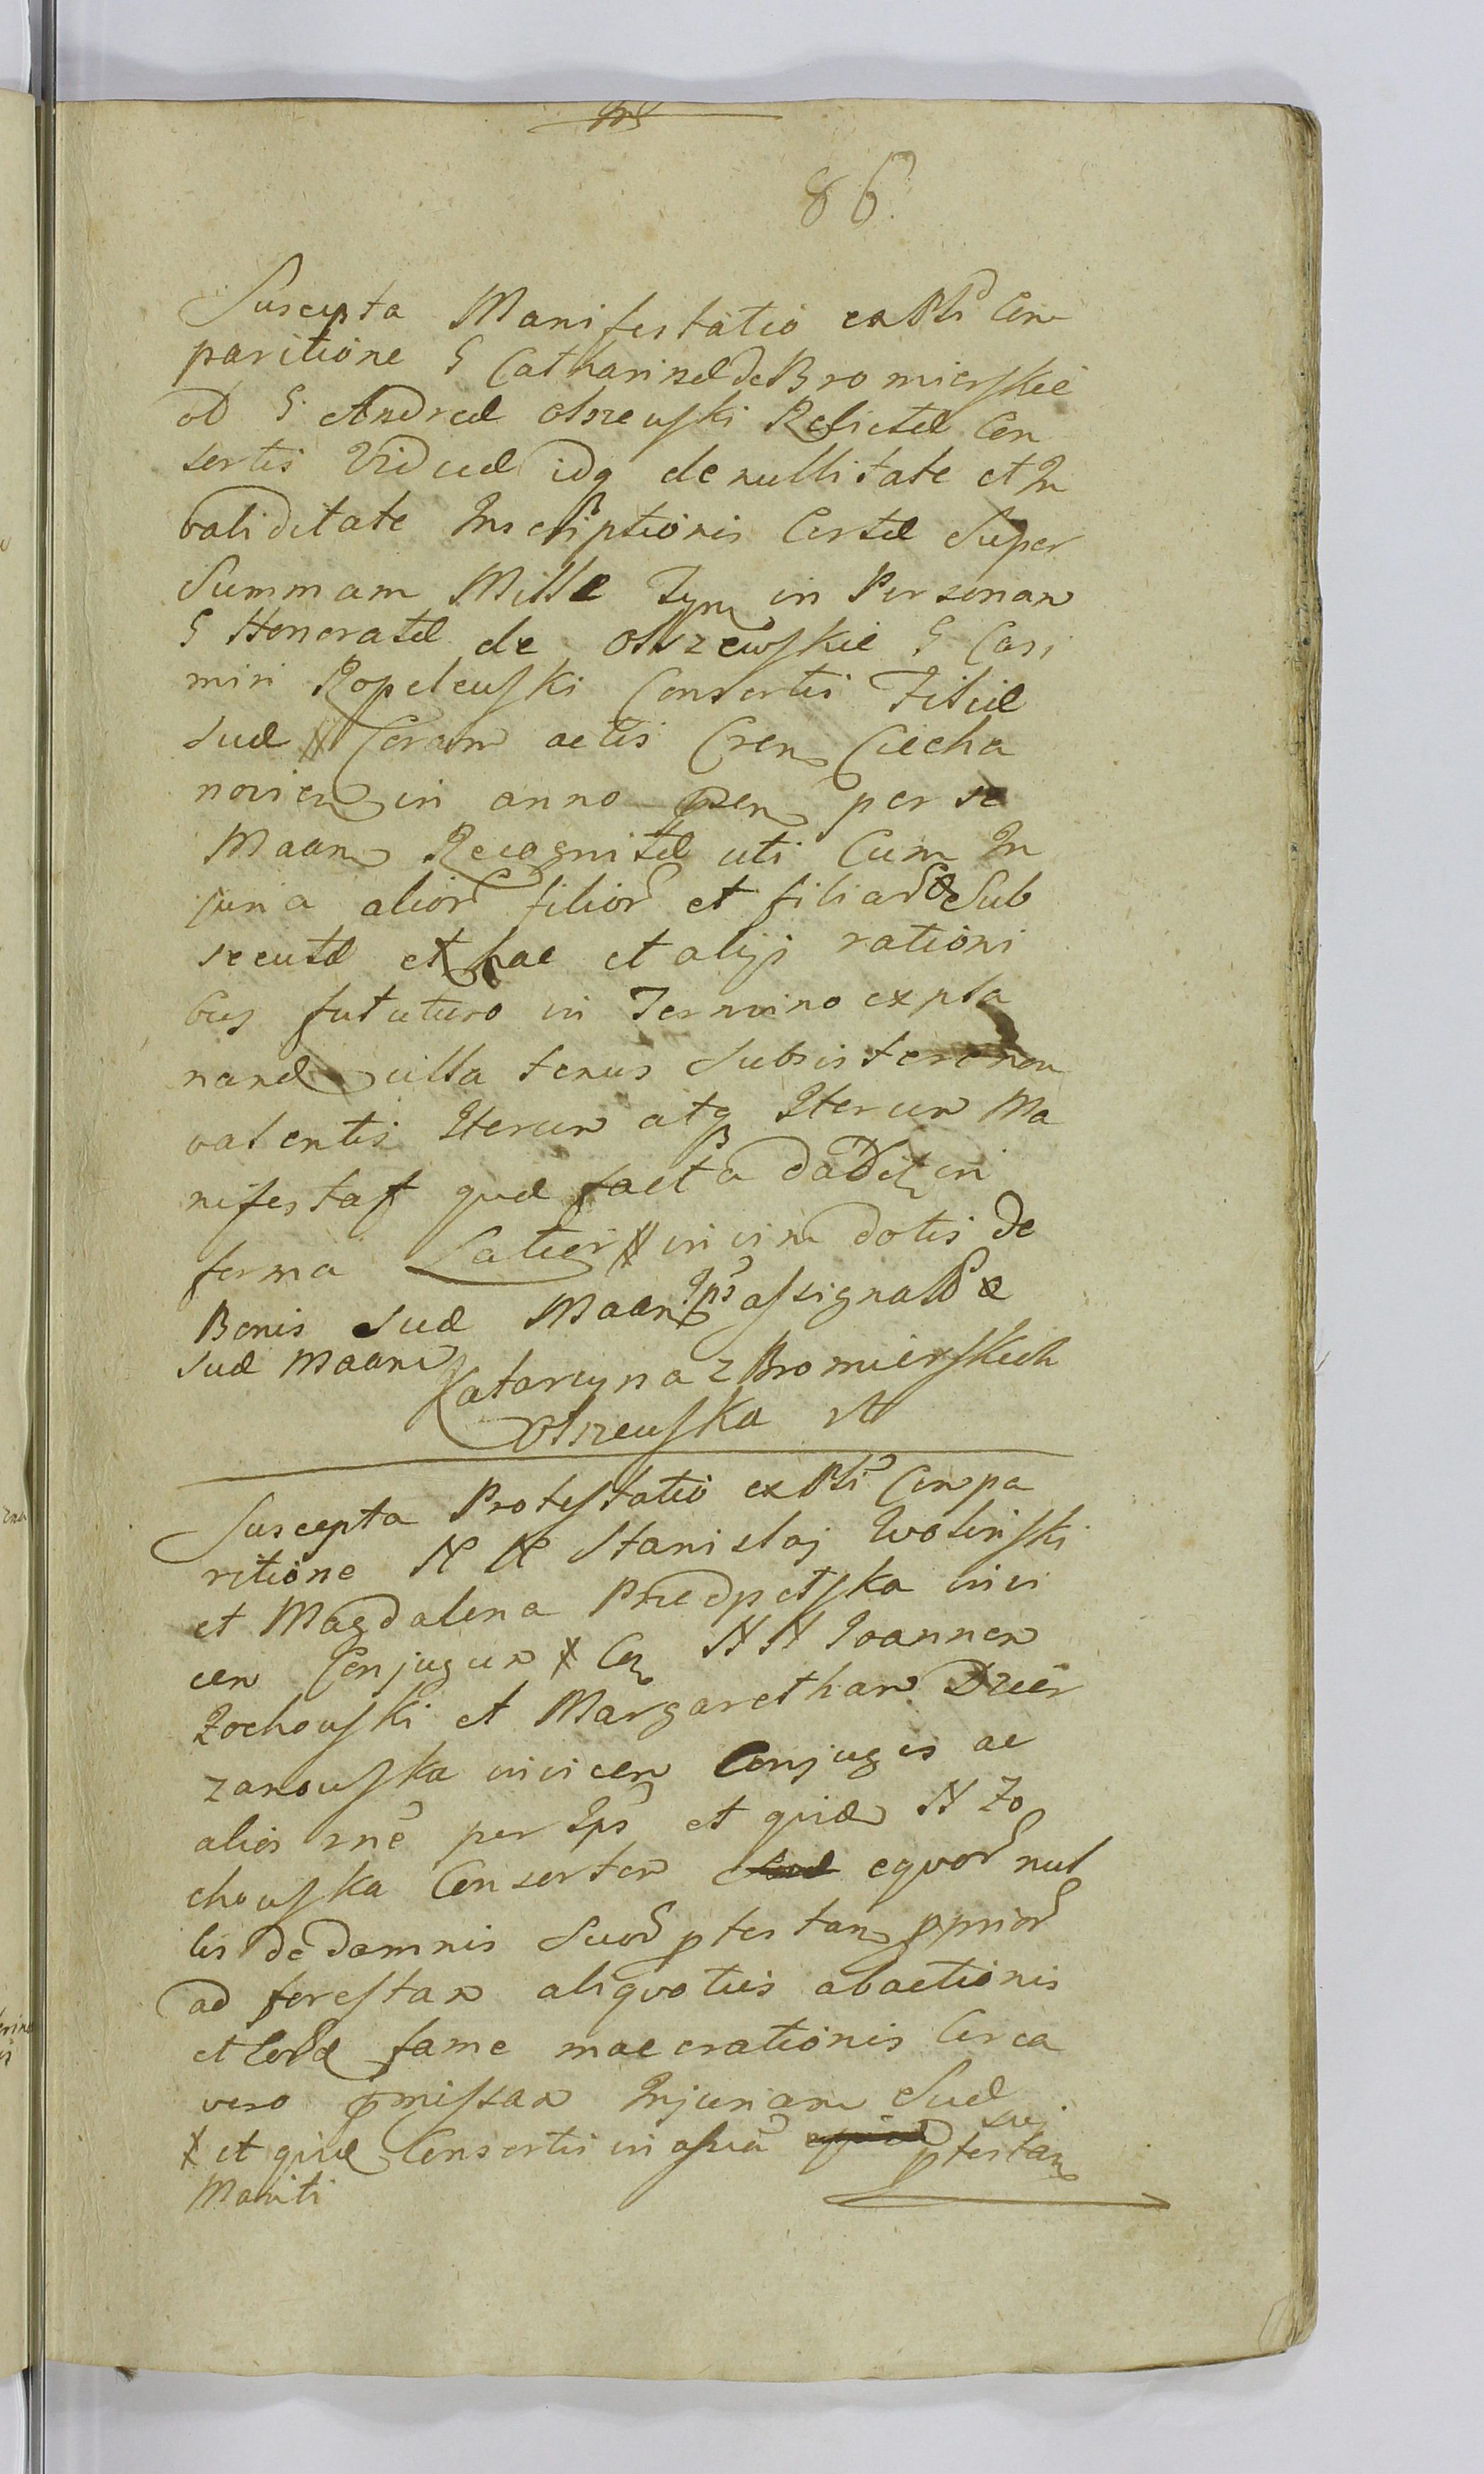 86.
Suscepta Manifestatio ex Psli Com
paritione G Catharinæ de Bromierskie
ob G. Andreæ Olszewski Relictæ Con
sortis Viduæ idq de nullitate et In
validitate Inscriptionis Certæ Super
Summam Mille Tym in Personam
G Honoratæ de Olszewskie G Casi
miri Ropelewski Consortis Filiæ
suæ Coram actis Cren Ciecha
novien in anno præsen per se
Maam Recognitæ uti Cum In
juria alior filior et filiar Sub
secutæ et hac et alijs rationi
bus fututuro in Termino expla
nand ulla tenus Subsistere non
valentis Iterum atq Iterum Ma
nifestat quæ facta dabitur in
forma Latiori in vim dotis de
Bonis suæ Maan Ips assignat
suæ Maann
Katarzyna z Bromierskich
Olszewska
Suscepta Protestatio ex Psli Compa
ritione N N Stanislaj Wolinski
et Magdalena Przedpelska invi
cem Conjugum Con N N Joannem
Zochowski et Margaretham Dzier
zanowska invicem Conjuges ac
alios rne per Ips et quidem N Zo
chowska Consortem equor nul
lis de damnis Suor ptestan pprior
ad forestam aliquoties abactionis
et fame macerationis Circa
vero pmissam Injuriam Suæ
et quidem Consortis in assia sui ptestan
Mariti